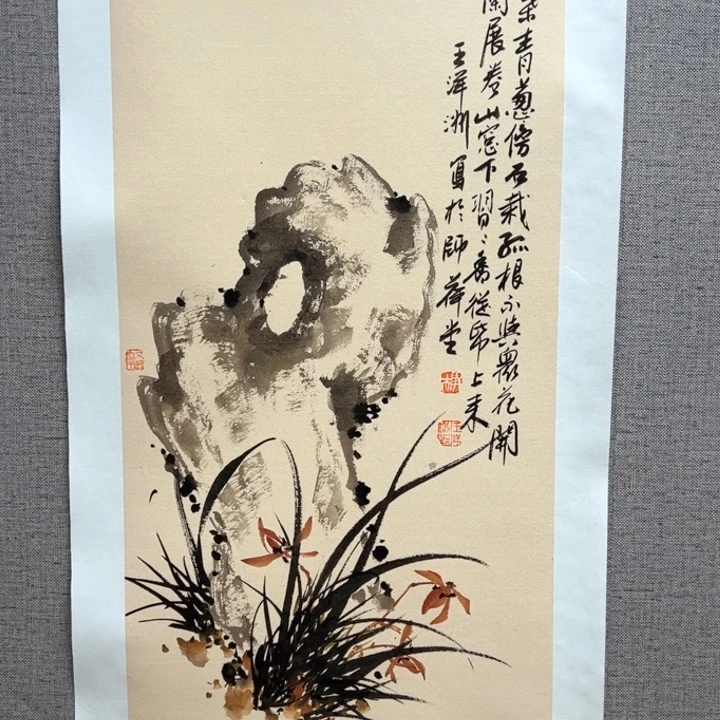 葉青蔥傍石栽孤根不與眾花開
蘭展卷山窗下習習香從紙上来
王洋洲寫於師荷堂